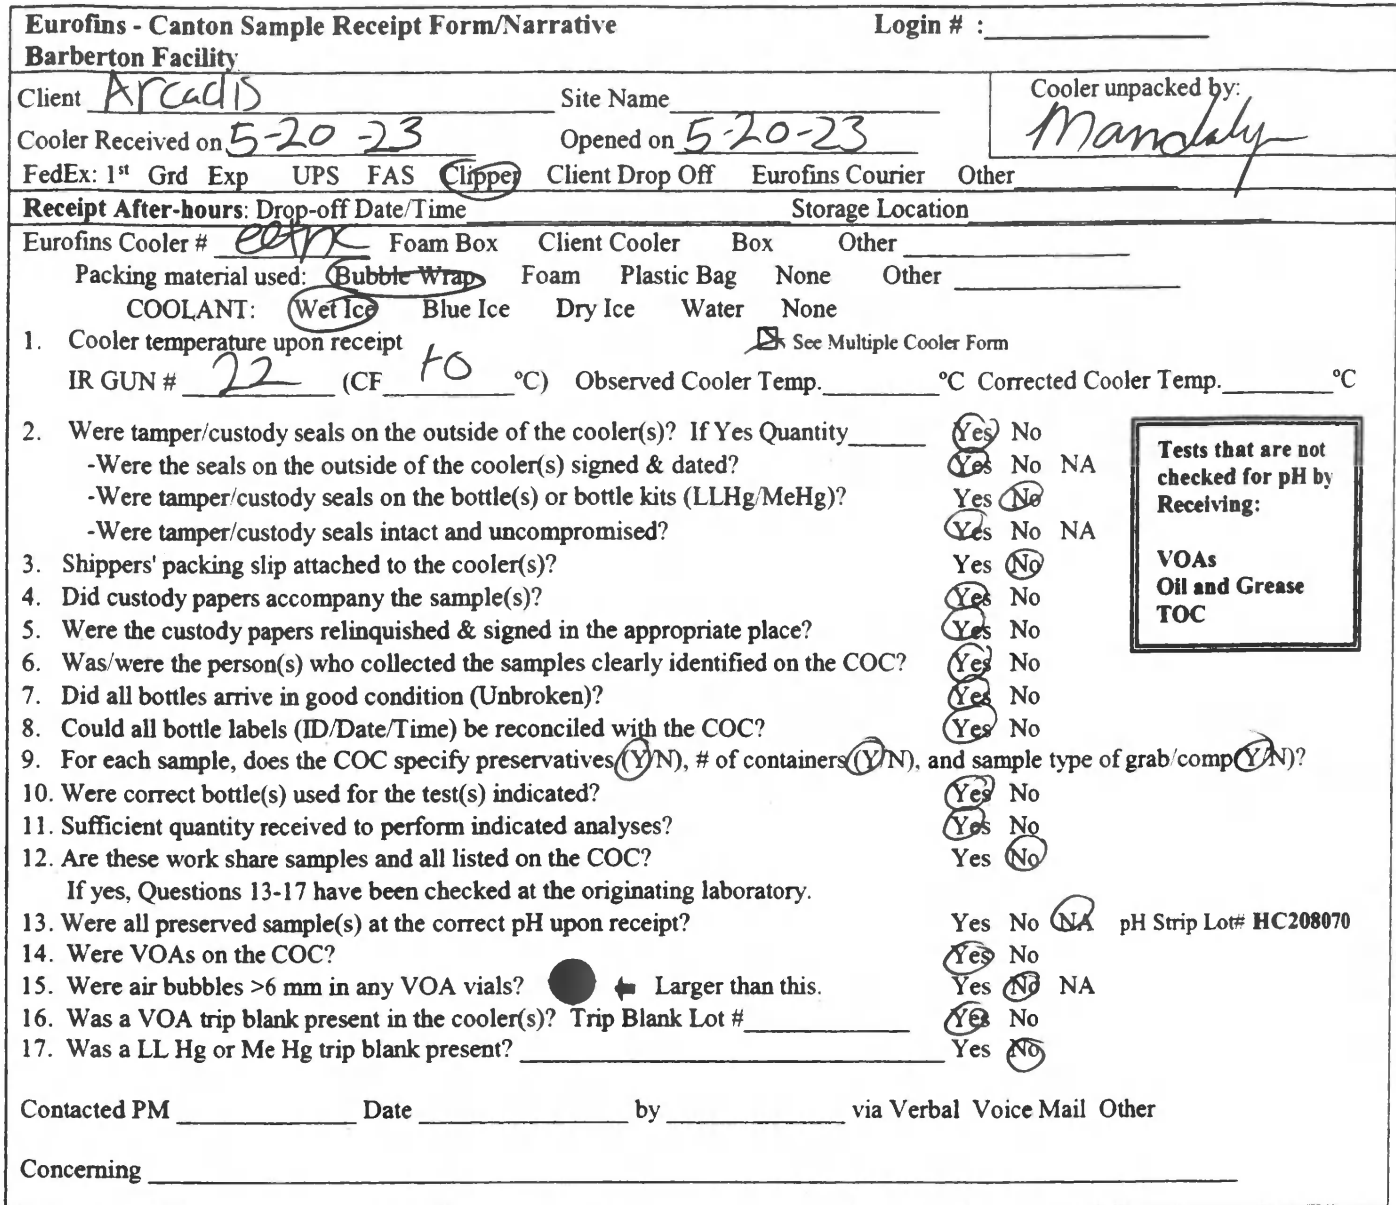 Eurofins - Canton Sample Receipt Form/Narrative Login # :
Barberton Facility
Client Arcadis Site Name Cooler unpacked by:
Cooler Received on 5-20-23 Opened on 5-20-23
FedEx: 1st Grd Exp UPS FAS Clipper Client Drop Off Eurofins Courier Other
Receipt After-hours: Drop-off Date/Time Storage Location
Eurofins Cooler # Foam Box Client Cooler Box Other
Packing material used: Bubble Wrap Foam Plastic Bag None Other
COOLANT: Wet Ice Blue Ice Dry Ice Water None
1. Cooler temperature upon receipt See Multiple Cooler Form
IR GUN # 22 (CF +0 °C) Observed Cooler Temp. °C Corrected Cooler Temp. °C
2. Were tamper/custody seals on the outside of the cooler(s)? If Yes Quantity Yes No
-Were the seals on the outside of the cooler(s) signed & dated? Yes No NA
-Were tamper/custody seals on the bottle(s) or bottle kits (LLHg/MeHg)? Yes No
-Were tamper/custody seals intact and uncompromised? Yes No NA
3. Shippers' packing slip attached to the cooler(s)? Yes No
4. Did custody papers accompany the sample(s)? Yes No
5. Were the custody papers relinquished & signed in the appropriate place? Yes No
6. Was/were the person(s) who collected the samples clearly identified on the COC? Yes No
7. Did all bottles arrive in good condition (Unbroken)? Yes No
8. Could all bottle labels (ID/Date/Time) be reconciled with the COC? Yes No
9. For each sample, does the COC specify preservatives (Y/N), # of containers (Y/N), and sample type of grab/comp (Y/N)?
10. Were correct bottle(s) used for the test(s) indicated? Yes No
11. Sufficient quantity received to perform indicated analyses? Yes No
12. Are these work share samples and all listed on the COC? Yes No
If yes, Questions 13-17 have been checked at the originating laboratory.
13. Were all preserved sample(s) at the correct pH upon receipt? Yes No NA pH Strip Lot# HC208070
14. Were VOAs on the COC? Yes No
15. Were air bubbles >6 mm in any VOA vials? Larger than this. Yes No NA
16. Was a VOA trip blank present in the cooler(s)? Trip Blank Lot # Yes No
17. Was a LL Hg or Me Hg trip blank present? Yes No
Tests that are not
checked for pH by
Receiving:
VOAs
Oil and Grease
TOC
Contacted PM Date by via Verbal Voice Mail Other
Concerning